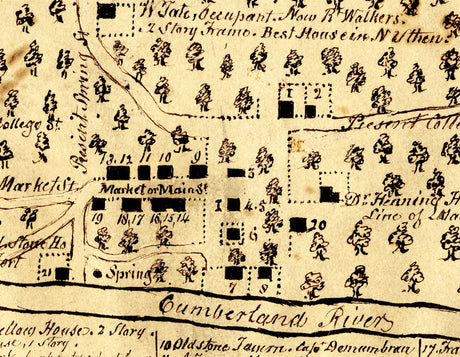 W Tate, Occupant. Now R Walkers.
2 Story Frame. Best House in N. then.
Present Spring St
College St.
1 2
Present Colle
13. 12 11 10 9
3
Market St.
Market or Main St
19 18 17 16 15 14
4 5
Dr Henning H
Line of
6
20
21
Spring
7 8
Cumberland River
ellow House. 2 Story
se, 1 Story.
10 Old Stone Tavern. Cap. Demumbrau
17. Fra